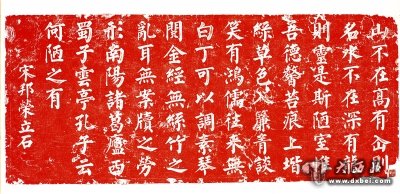 山不在高有仚
名水不在深有龍
則靈是斯陋室惟
吾德馨苔痕上堦
綠草色入簾青談
笑有鴻儒往來無
白丁可以調素琴
閱金經無絲竹之
亂耳無案牘之勞
形南陽諸葛廬西
蜀子雲亭孔子云
何陋之有
宋邦榮立石
www.dxbei.com